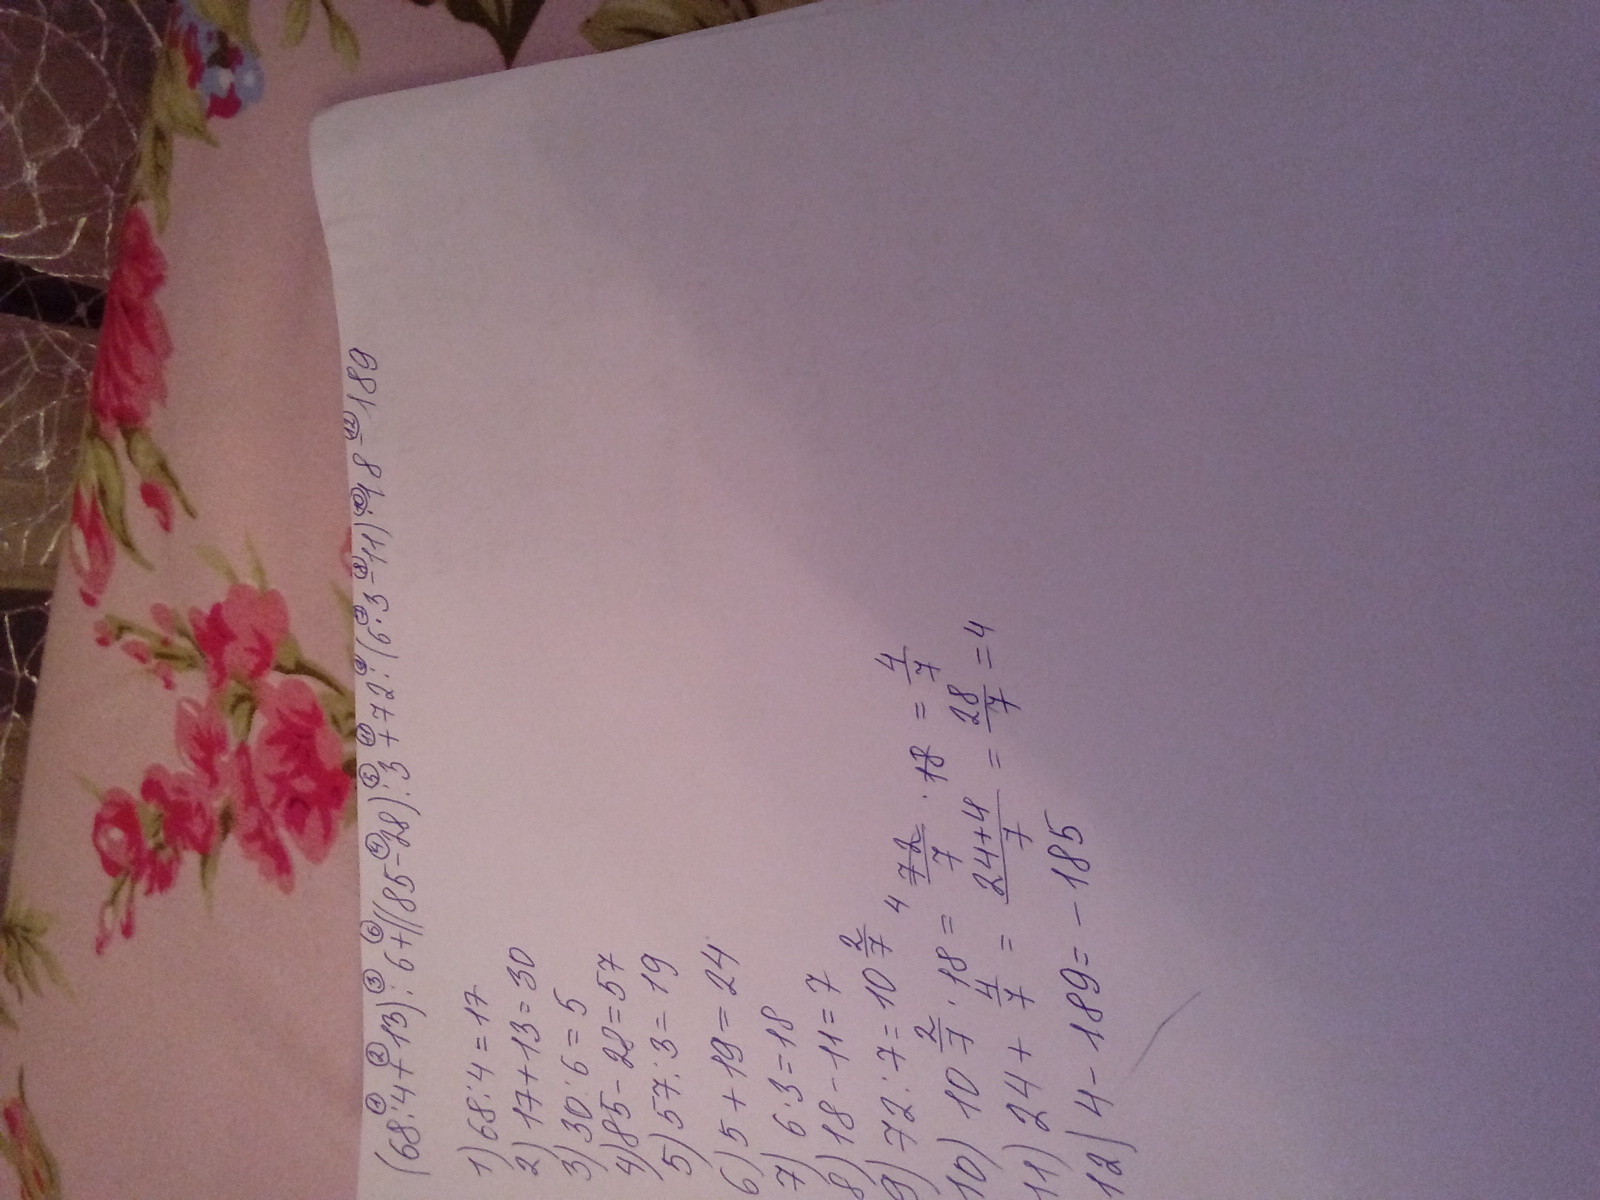 (68:4+13):6+((85-28):3+72:(6·3-11)·18-189
1) 68:4=17
2) 17+13=30
3) 30:6=5
4) 85-28=57
5) 57:3=19
6) 5+19=24
7) 6·3=18
8) 18-11=7
9) 72:7=10 2/7
10) 10 2/7 · 18 = 4 72/7 · 18 = 4/7
11) 24 + 4/7 = (24+4)/7 = 28/7 = 4
12) 4-189=-185